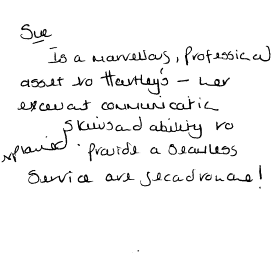 Sue
Is a marvellous, professional
asset to Hartley's – her
excellent communication
skills and ability to
provide a seamless
service are second to none!